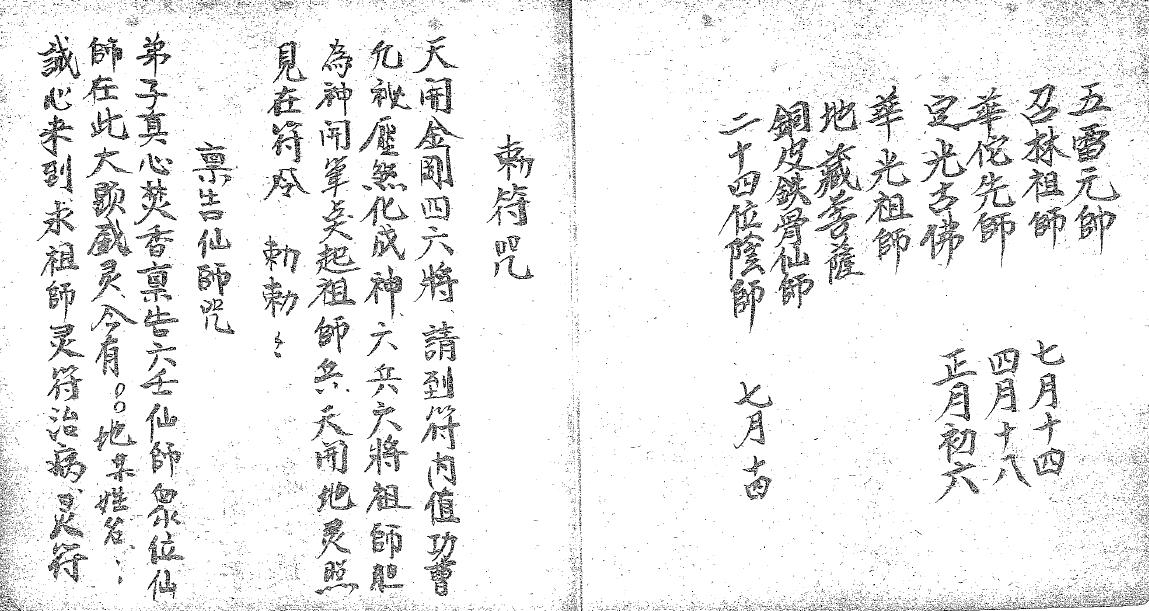 五雷元帥
召林祖師 七月十四
華佗先師 四月十八
定光古佛 正月初六
華光祖師
地藏菩薩
銅皮鉄骨仙師
二十四位陰師 七月十四
勅符咒
天開金剛四六將請到符內值功曹
允被壓煞化成神六兵六將祖師胆
為神開軍矣起祖師兵天開地灵照
見在符令 勅勅〻
禀告仙師咒
弟子真心焚香禀告六壬仙師眾位仙
師在此大顕威灵今有○○地某姓名〻
誠心来到求祖師灵符治病灵符